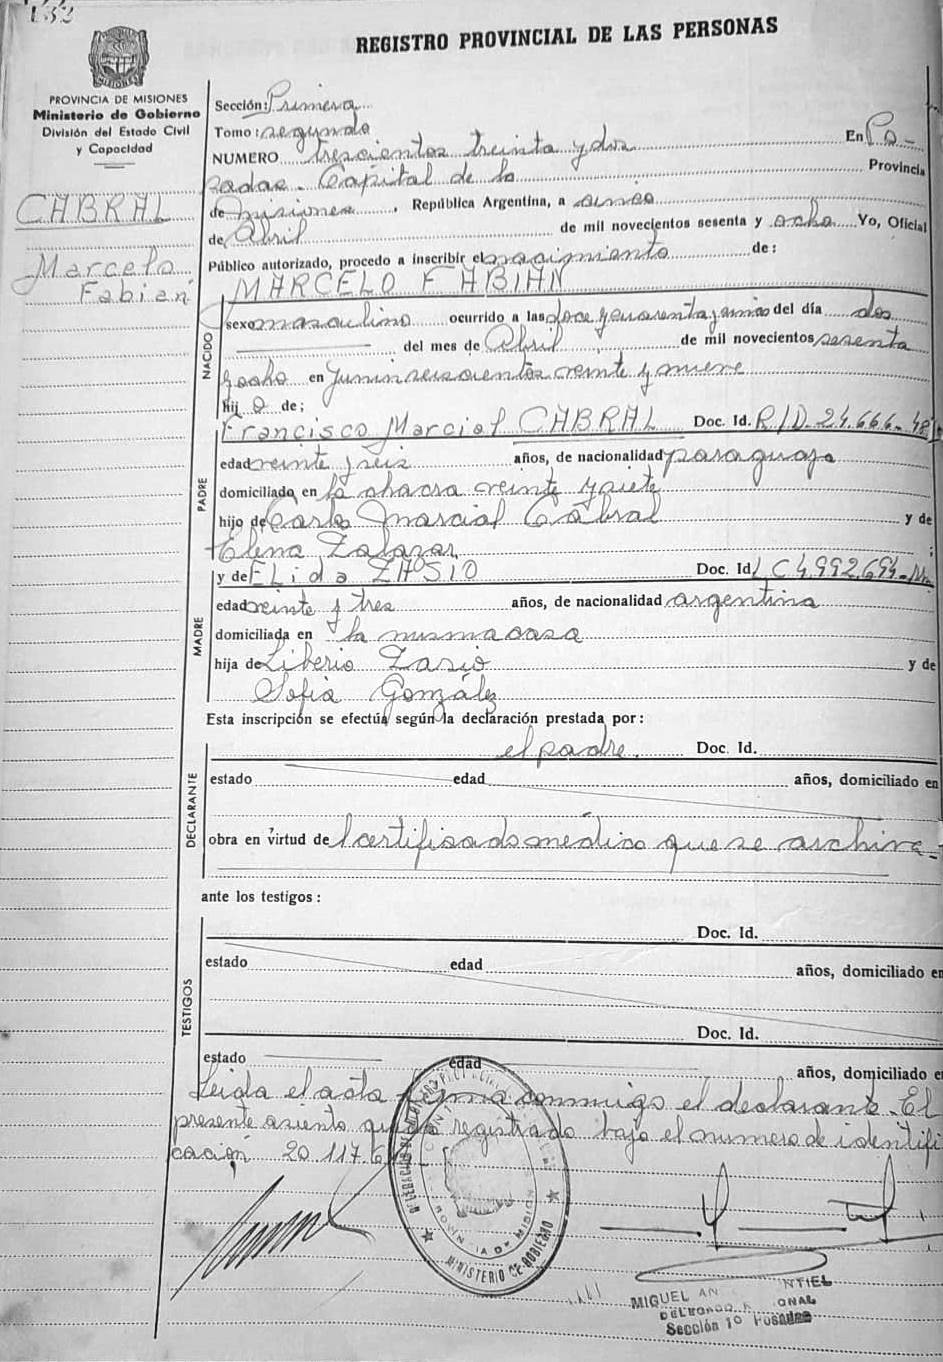 REGISTRO PROVINCIAL DE LAS PERSONAS
PROVINCIA DE MISIONES
Ministerio de Gobierno
División del Estado Civil
y Capacidad
CABRAL
Marcelo
Fabián
Sección: Primera
Tomo: segundo
NUMERO trescientos treinta y dos En Po-
sadas. Capital de la Provincia
de Misiones, República Argentina, a cinco
de Abril de mil novecientos sesenta y ocho Yo, Oficial
Público autorizado, procedo a inscribir el nacimiento de:
MARCELO FABIAN
NACIDO
sexo masculino ocurrido a las doce y cuarenta y cinco del día dos
del mes de Abril de mil novecientos sesenta
y ocho en Junín seiscientos veinte y nueve
hijo de;
Francisco Marcial CABRAL Doc. Id. R/D. 24.666
PADRE
edad veinte y seis años, de nacionalidad paraguaya
domiciliado en la chacra veinte y siete
hijo de Carlos Marcial Cabral y de
Elena Zalazar ;
y de ELida ZASIO Doc. Id L C 4.992.694
MADRE
edad veinte y tres años, de nacionalidad argentina
domiciliada en la misma casa
hija de Liberio Zasio y de
Sofia González
Esta inscripción se efectúa según la declaración prestada por:
el padre. Doc. Id.
DECLARANTE
estado edad años, domiciliado en
obra en virtud del certificado médico que se archiva-
ante los testigos:
Doc. Id.
TESTIGOS
estado edad años, domiciliado en
Doc. Id.
estado edad años, domiciliado en
Leida el acta firma conmigo el declarante. El
presente asiento queda registrado bajo el numero de identifi
cación 20.117.6
MINISTERIO DE GOBIERNO
MIGUEL
Sección 1º Posadas